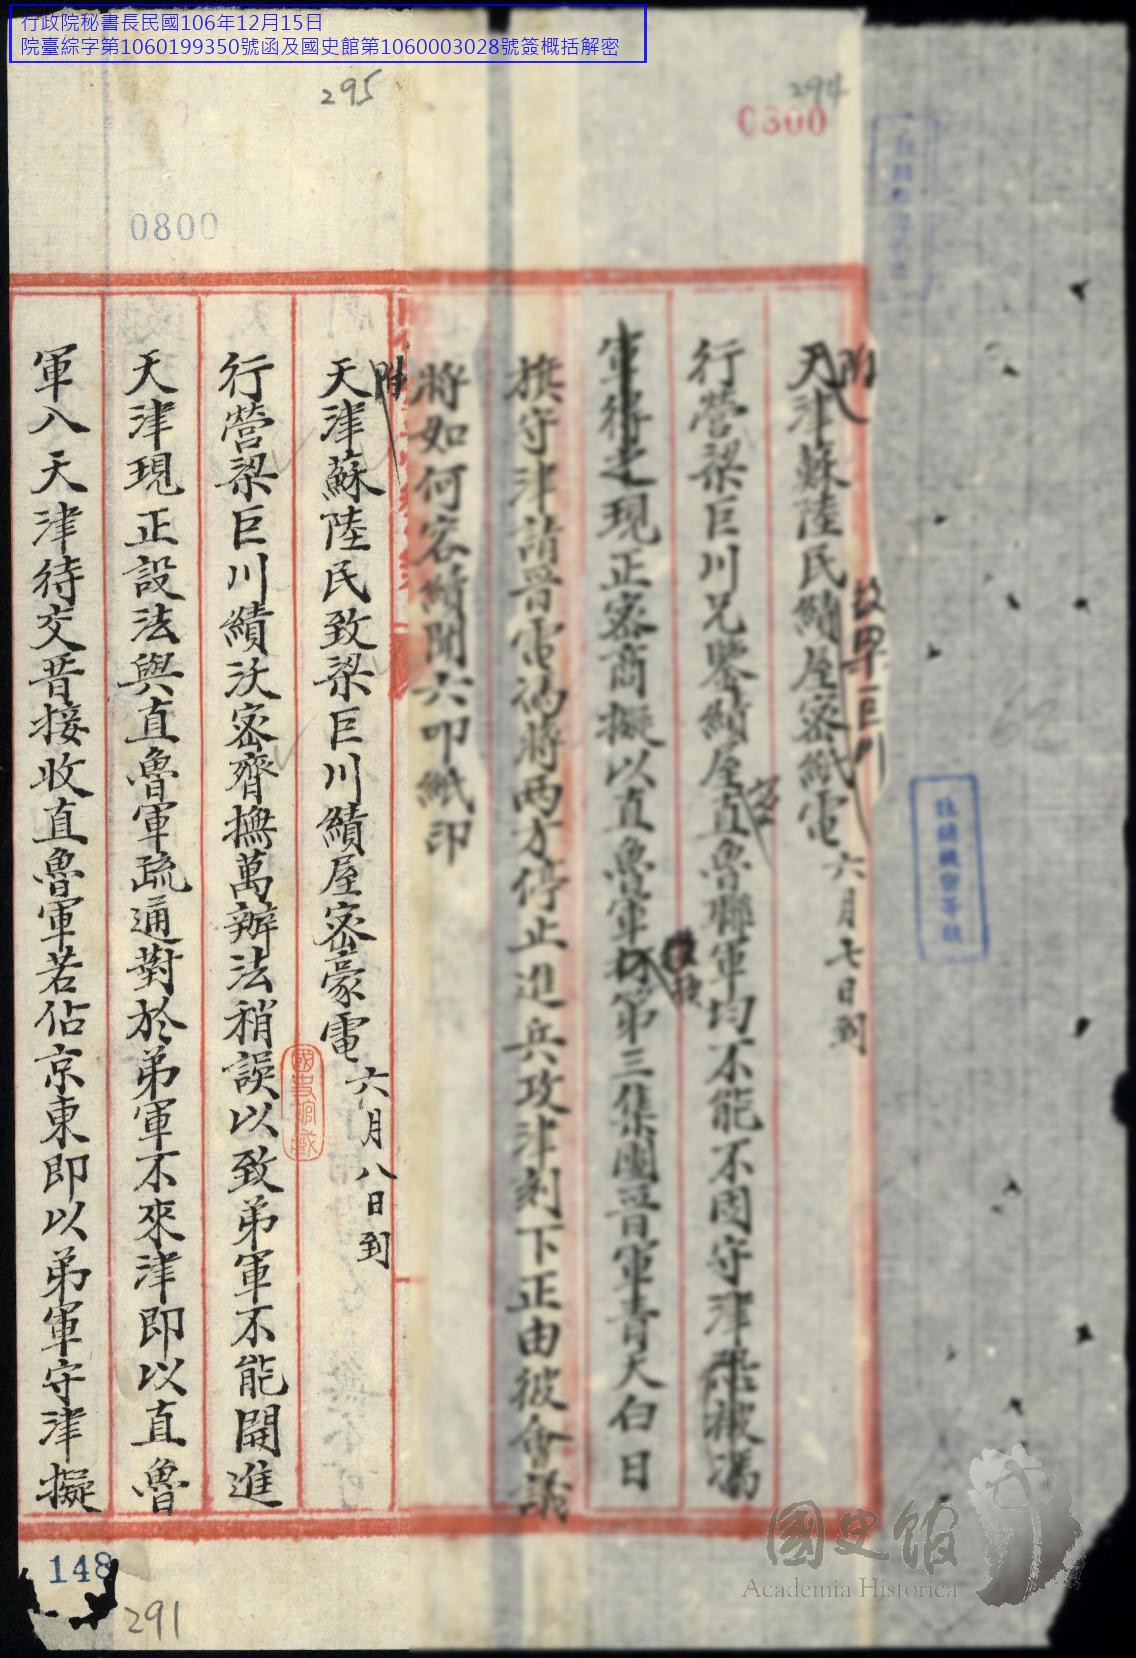 行政院秘書長民國106年12月15日
院臺綜字第1060199350號函及國史館第1060003028號簽概括解密
295
294
0800
0800
附
天津蘇陸民績屋密紙電 六月七日到
致梁巨川
行營梁巨川兄鑒績屋密直魯聯軍均不能不固守津恐被馮
軍得之現正密商擬以直魯軍換第三集團晉軍青天白日
旗守津請晉電馮將兩方停止進兵攻津刻下正由彼會議
將如何容績聞六叩紙印
附
天津蘇陸民致梁巨川績屋密豪電 六月八日到
行營梁巨川績沃密齊撫萬辦法稍誤以致弟軍不能開進
天津現正設法與直魯軍疏通對於弟軍不來津即以直魯
軍入天津待交晉接收直魯軍若佔京東即以弟軍守津擬
國史館藏
註銷機密等級
148
291
國史館
Academia Historica